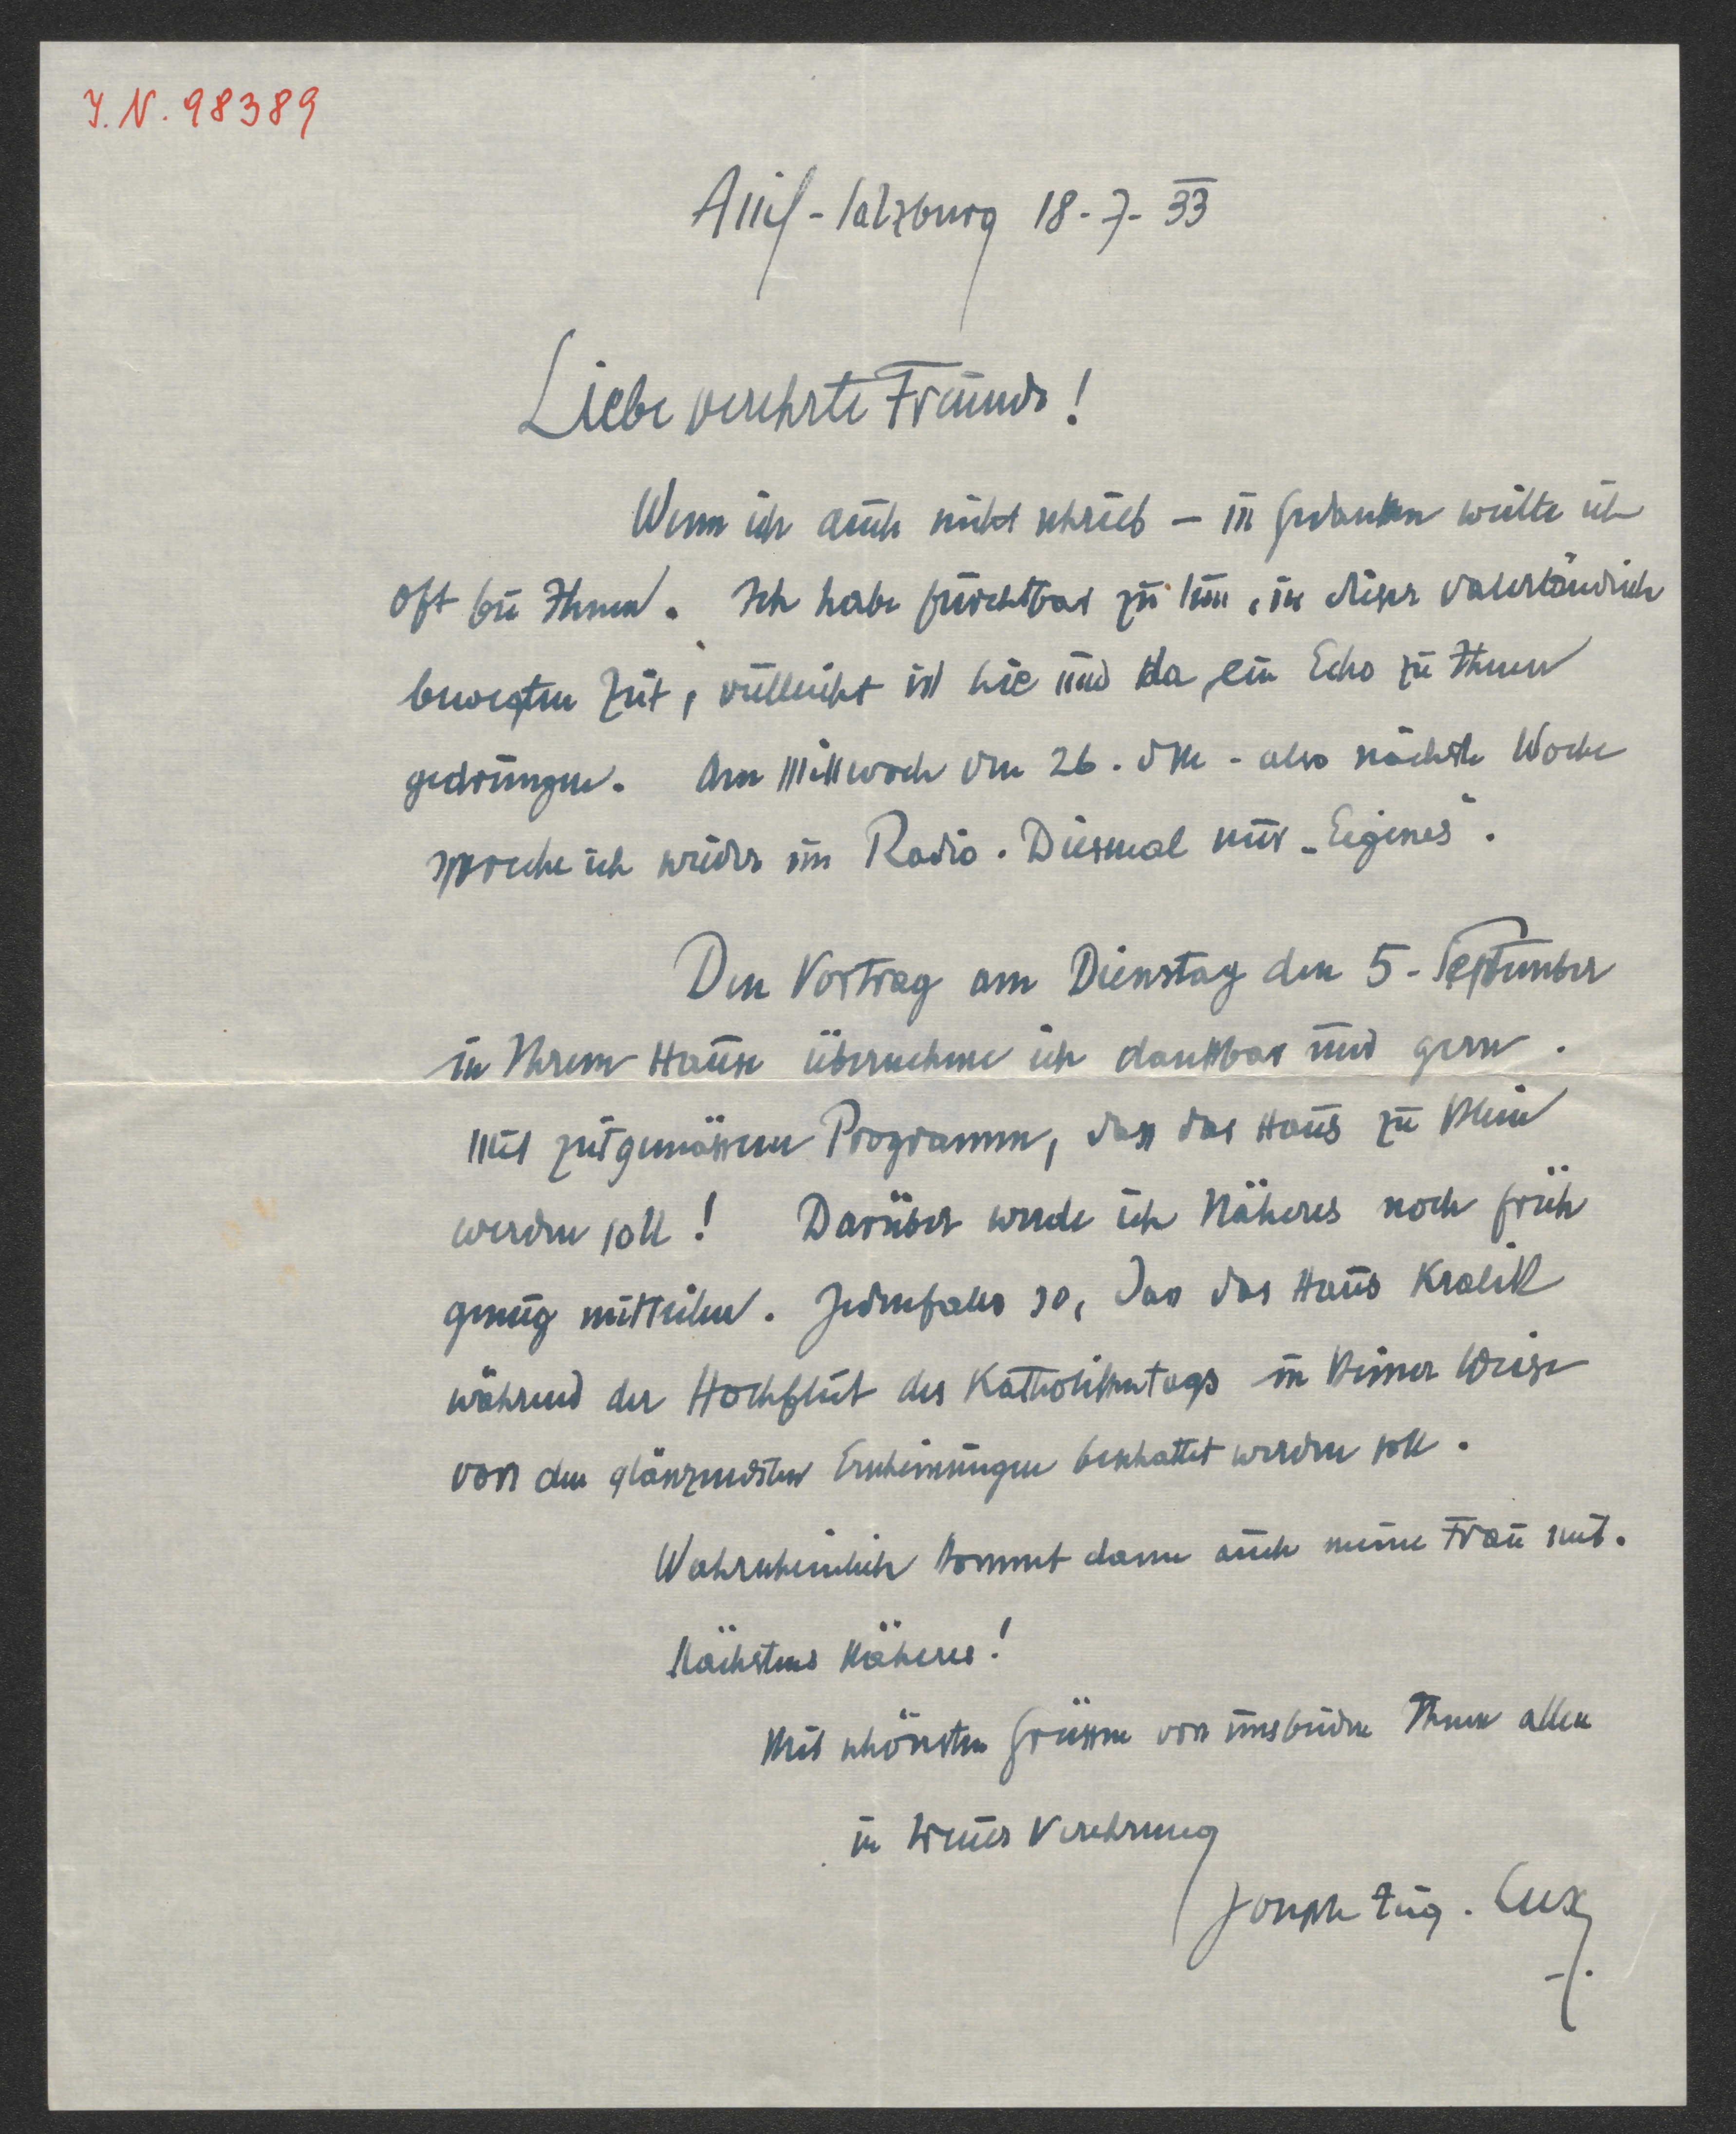 I. N. 98389
Anif - Salzburg 18 - 7 - 33
Liebe verehrte Freunde!
Wenn ich auch nicht schrieb — in Gedanken weilte ich
oft bei Ihnen. Ich habe furchtbar zu tun, in dieser vaterländisch
bewegten Zeit, vielleicht ist hie und da ein Echo zu Ihnen
gedrungen. Am Mittwoch den 26. dM - also nächste Woche
spreche ich wieder im Radio. Diesmal nur „Eigenes“.
Den Vortrag am Dienstag den 5. September
in Ihrem Hause übernehme ich dankbar und gern.
Mit zeitgemässem Programm, dass das Haus zu klein
werden soll! Darüber werde ich Näheres noch früh
genug mitteilen. Jedenfalls so, dass das Haus Kralik
während der Hochflut des Katholikentags in keiner Weise
von den glänzendsten Erscheinungen beschattet werden soll.
Wahrscheinlich kommt dann auch meine Frau mit.
Nächstens Näheres!
Mit schönsten Grüssen von uns beiden Ihnen allen
in treuer Verehrung
Joseph Aug. Lux